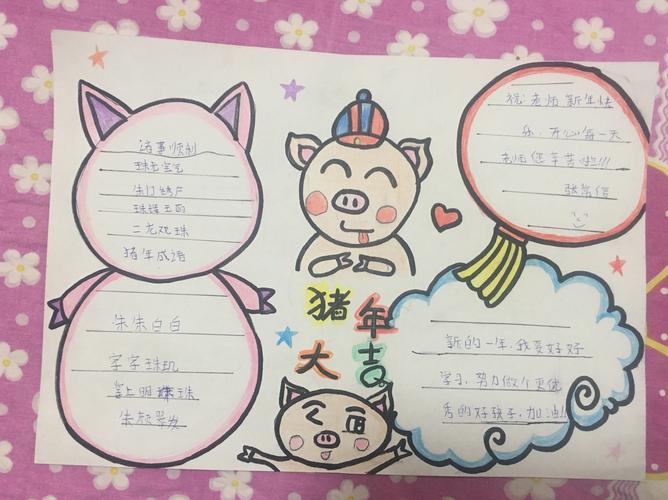 诸事顺利
珠光宝气
朱门绣户
珠璧玉
二龙戏珠
猪年成语
朱朱白白
字字珠玑
掌上明珠
朱颜翠发
猪年
大吉
祝:老师新年快
乐,开心每一天
老师您辛苦啦!!!
新的一年,我要好好
学习,努力做个更优
秀的好孩子,加油!!